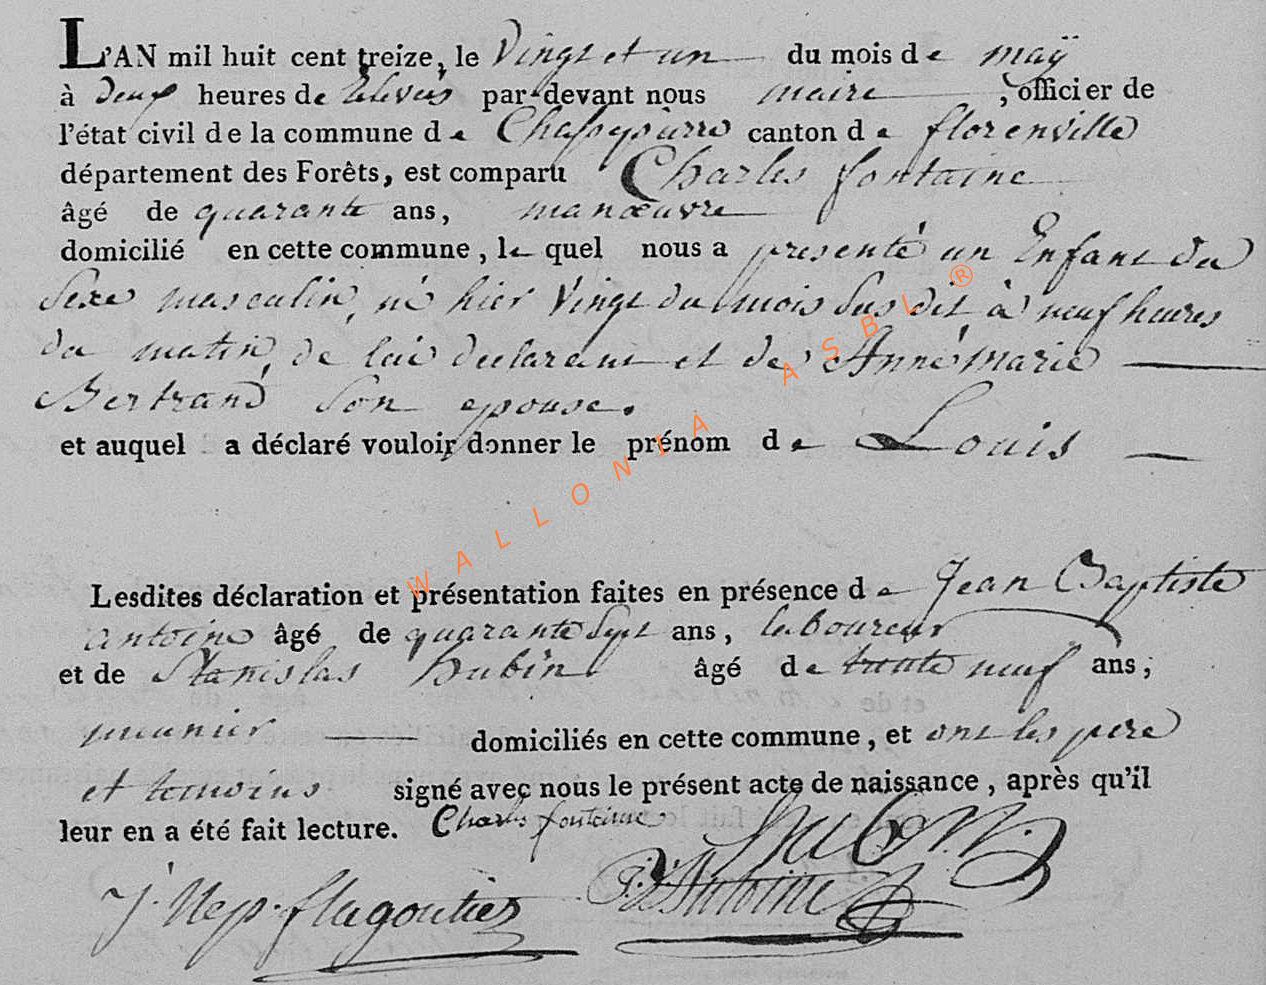 L'AN mil huit cent treize, le Vingt et un du mois de maÿ
à deux heures de relevés par-devant nous maire, officier de
l'état civil de la commune de Chassepierre canton de florenville
département des Forêts, est comparu Charles fontaine
âgé de quarante ans, manœuvre
domicilié en cette commune, le quel nous a presenté un Enfant du
Sexe masculin, né hier Vingt du mois Sus dit à neuf heures
du matin, de lui declarant et de Anne marie
Bertrand Son epouse.
et auquel a déclaré vouloir donner le prénom de Louis
Lesdites déclaration et présentation faites en présence de Jean Baptiste
antoine âgé de quarante Sept ans, laboureur
et de Stanislas hubin âgé de trente neuf ans,
meunier domiciliés en cette commune, et ont les pere
et temoins signé avec nous le présent acte de naissance, après qu'il
leur en a été fait lecture. Charles fontaine Hubin.
J. Nep. flagontier J. B. Antoine
WALLONIA ASBL ®